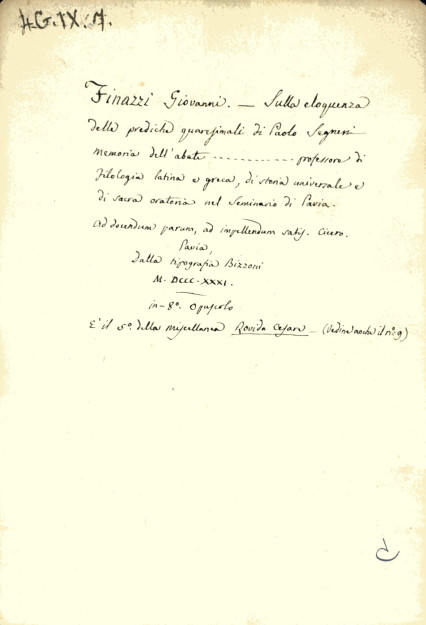 4G.IX.7.
Finazzi Giovanni. — Sulla eloquenza
delle prediche quaresimali di Paolo Segneri
memoria dell'abate ............... professore di
filologia latina e greca, di storia universale e
di sacra oratoria nel Seminario di Pavia.
Ad docendum parum, ad impellendum satis. Cicero.
Pavia,
Dalla tipografia Bizzoni
M. DCCC. XXXI.
in-8°. Opuscolo
E' il 5°. della miscellanea Rovida Cesare — (Vedine anche il n°. 9)